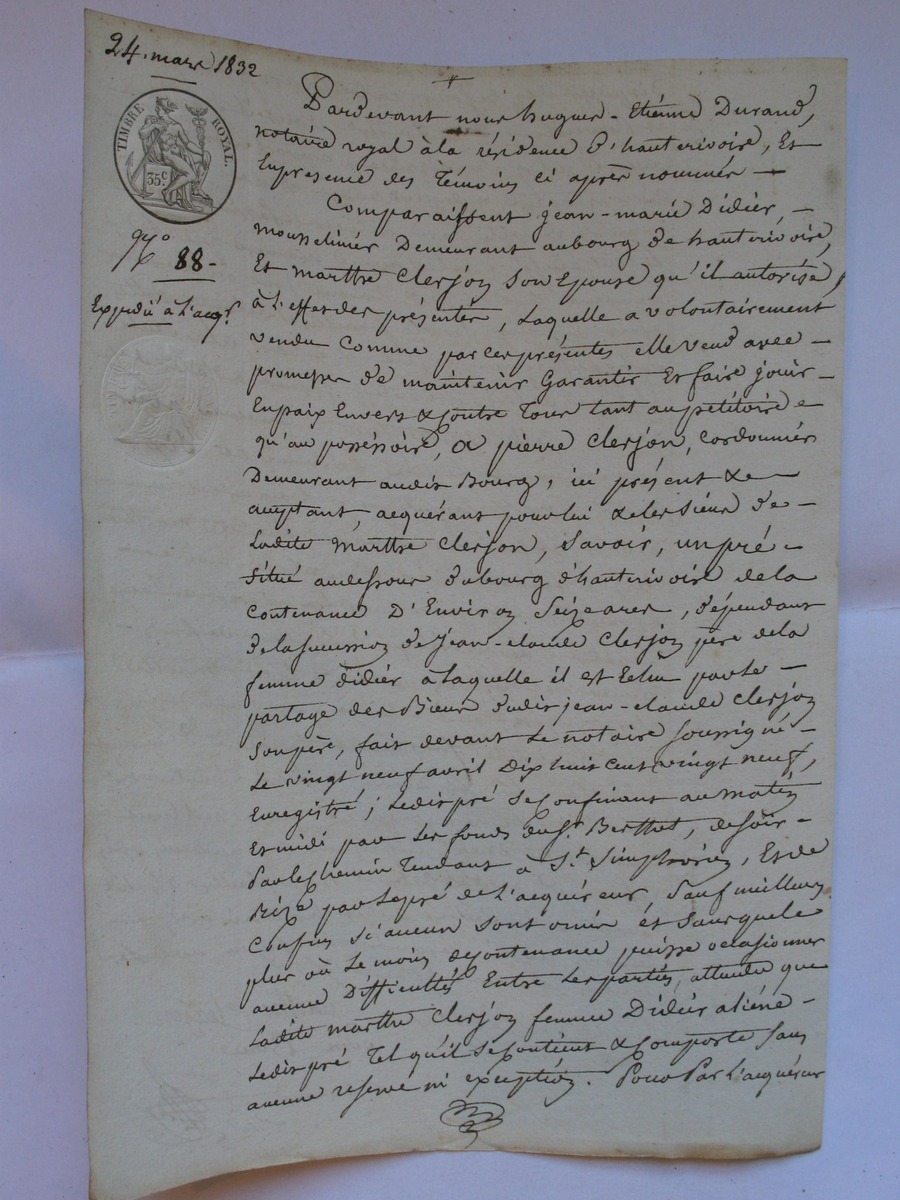 24. mars 1832
TIMBRE ROYAL.
35 c.
N.º 88 -
Expédié à l'acqr.
Pardevant nous hugues - Etiénne Durand,
notaire royal à la résidence d'hauterivoire, Et
Enpresence des Témoins ci après nommés -
Comparaissent jean-marie Didier, -
mousselinier Demeurant aubourg de hauterivoire,
Et marthe Clerjon son Epouse qu'il autorise
à l'effet des présentes, Laquelle a volontairement
vendu Comme par ces présentes elle vend avec -
promesse de maintenir Garantir Et faire jouir -
Enpaix Envers & Contre Tous tant au pétitoire
qu'au possessoire, a pierre Clerjon, Cordonnier
Demeurant audit Bourg, ici présent &
acceptant, acquérant pour lui & les siens de -
Ladite Marthe Clerjon, Savoir, un pré -
situé audessous dubourg d'hauterivoire de la
Contenance D'Environ Seize ares, dépendant
de la succession de jean-claude Clerjon père de la
femme didier à Laquelle il est Echu par le -
partage des Biens dudit jean-claude Clerjon
son père, fait devant Le notaire soussigné -
Le vingt neuf avril Dix huit cent vingt neuf,
Enregistré; Ledit pré se Confinant au matin
Et midi par Les fonds du Sr. Berthet, de soir -
Par le chemin Tendant à St. Simphorien, Et de
Bize par Le pré de L'acquéreur, sauf meilleurs
Confins si aucun sont omis et sans que le
plus où Le moins de Contenance puisse occasionner
aucune Difficultés Entre Les parties, attendu que
Ladite marthe Clerjon femme Didier aliéne -
Ledit pré Tel qu'il se Contient & Comporte sans
aucune reserve ni exception. Pour Par L'acquéreur